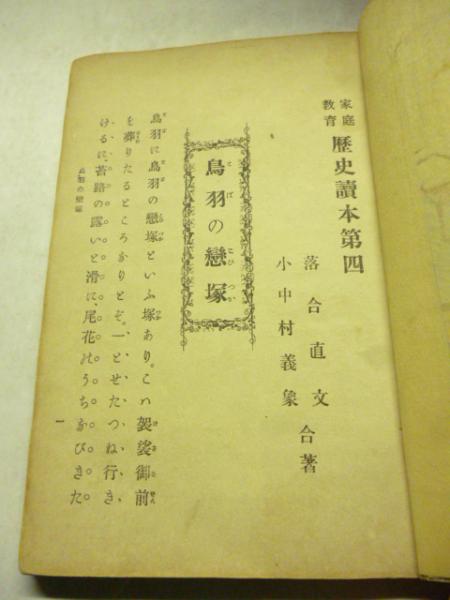 家庭教育 歴史讀本第四
落合直文
小中村義象 合著
鳥羽の戀塚
鳥羽に鳥羽の戀塚といふ塚あり。こハ袈裟御前
を葬りたるところなりとぞ。一とせたつね行き
けるに、苔路の露いと滑に、尾花のうちなびきた
鳥羽の戀塚
一